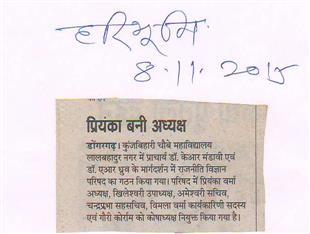 हरिभूमि
8.11.2015
प्रियंका बनी अध्यक्ष
डोंगरगढ़। कुंजबिहारी चौबे महाविद्यालय
लालबहादुर नगर में प्राचार्य डॉ. केआर मंडावी एवं
डॉ. एआर ध्रुव के मार्गदर्शन में राजनीति विज्ञान
परिषद का गठन किया गया। परिषद में प्रियंका वर्मा
अध्यक्ष, खिलेश्वरी उपाध्यक्ष, अमेश्वरी सचिव,
चन्द्रप्रभा सहसचिव, विमला वर्मा कार्यकारिणी सदस्य
एवं गौरी कोर्राम को कोषाध्यक्ष नियुक्त किया गया है।